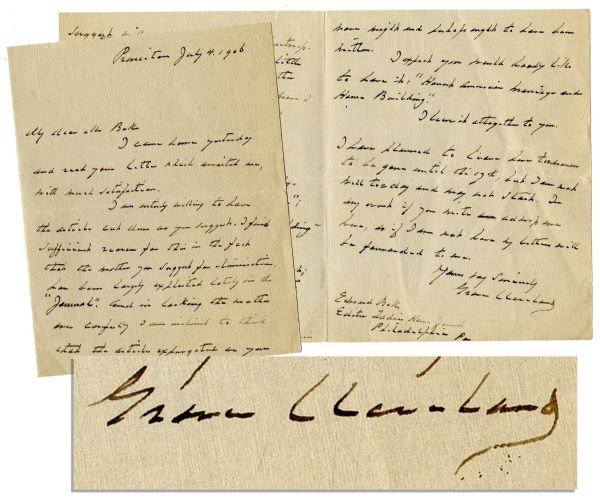 Princeton July 4. 1906
My dear Mr Bok
I came home yesterday
and read your letter which awaited me,
with much satisfaction.
I am entirely willing to have
the article cut down as you suggest. I find
sufficient reason for this in the fact
that the matter you suggest for elimination
has been largely exploited lately in the
"Journal". And in looking the matter
over carefully I am inclined to think
that the article expurgated as you
more might and perhaps ought to have been
written.
I expect you would hardly like
to have it: "Honest American Marriage and
Home Building."
I leave it altogether to you.
I have planned to leave here tomorrow
to be gone until the 17th, but I am not
well today and may not start. In
any event if you write me address me
here, as if I am not here my letters will
be forwarded to me.
Yours very sincerely
Grover Cleveland
Edward Bok
Editor Ladies Home Journal
Philadelphia Pa
Grover Cleveland